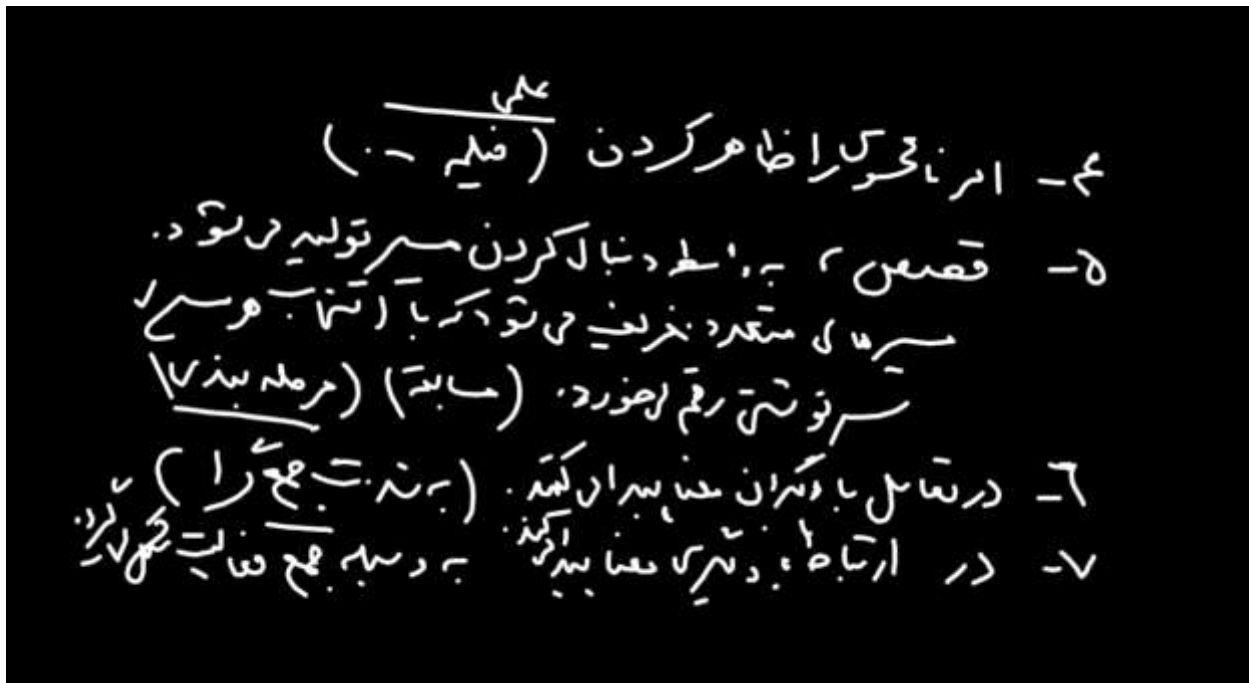 علمی
۴- امر نامحسوس را ظاهر کردن (فیلم ...)
۵- قصص، به واسطه دنبال کردن مسیر تولید می‌شود.
مسیرهای متعدد تعریف می‌شود که با انتخاب هر مسیر
سرنوشتی رقم می‌خورد. (مسابقه) (مرحله بندی)
۶- در تعامل با دیگران معنا پیدا می‌کند. (به شدت جمع گرا)
۷- در ارتباط با دیگری معنا پیدا می‌کند. به وسیله جمع فعالیت شکل می‌گیرد.